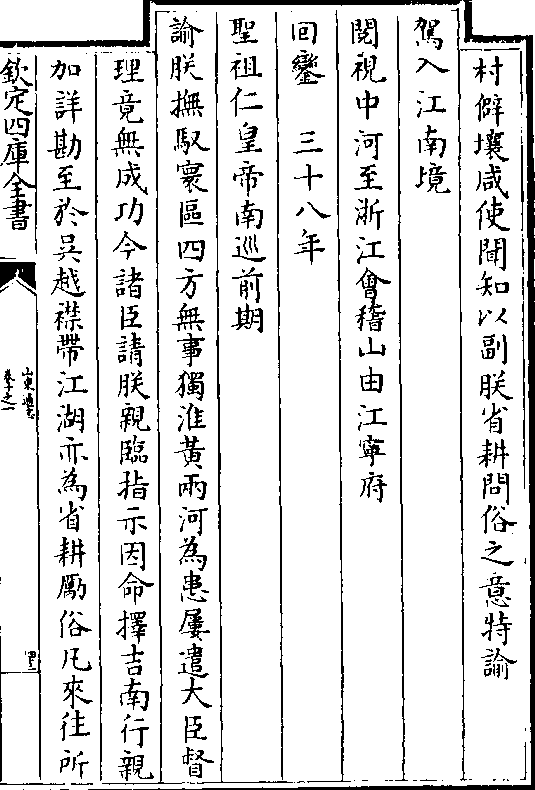 村僻壤咸使聞知以副朕省耕問俗之意特諭
駕入江南境
閱視中河至浙江會稽山由江寧府
回鑾　三十八年
聖祖仁皇帝南巡前期
諭朕撫馭寰區四方無事獨淮黃兩河為患屢遣大臣督
理竟無成功今諸臣請朕親臨指示因命擇吉南行親
加詳勘至於吳越襟帶江湖亦為省耕勵俗凡來往所
欽定四庫全書
山東通志
卷十之一